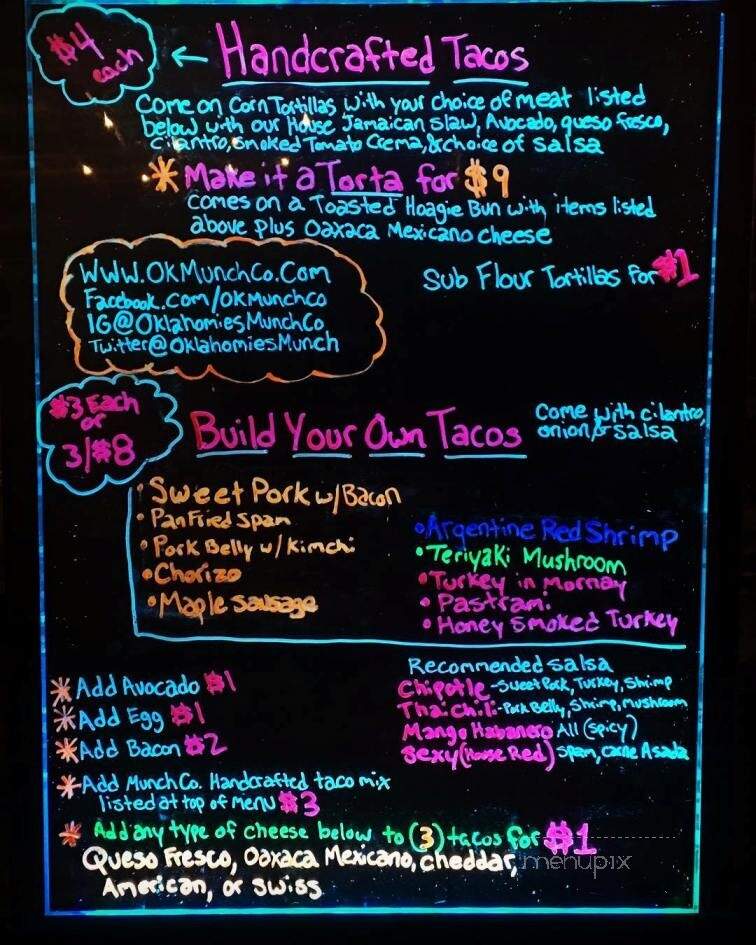 $4 each
← Handcrafted Tacos
Come on Corn Tortillas with your choice of meat listed
below with our House Jamaican slaw, Avocado, queso fresco,
cilantro, smoked Tomato Crema, & choice of salsa
* Make it a Torta for $9
Comes on a Toasted Hoagie Bun with items listed
above plus Oaxaca Mexicano cheese
WWW.OKMunchCo.Com
Facebook.com/OKMunchCo
IG@OklahomiesMunchCo
Twitter@OklahomiesMunch
Sub Flour Tortillas for $1
$3 Each
or
3/$8
Build Your Own Tacos
Come with cilantro,
onion & salsa
• Sweet Pork w/Bacon
• Pan Fried Spam
• Pork Belly w/ Kimchi
• Chorizo
• Maple Sausage
• Argentine Red Shrimp
• Teriyaki Mushroom
• Turkey in Mornay
• Pastrami
• Honey Smoked Turkey
* Add Avocado $1
* Add Egg $1
* Add Bacon $2
* Add Munch Co. Handcrafted taco mix
listed at top of menu $3
Recommended salsa
Chipotle - Sweet Pork, Turkey, Shrimp
Thai Chili - Pork Belly, Shrimp, Mushroom
Mango Habanero All (spicy)
Sexy (House Red) Spam, Carne Asada
* Add any type of cheese below to (3) tacos for $1
Queso Fresco, Oaxaca Mexicano, cheddar,
American, or swiss
menupix